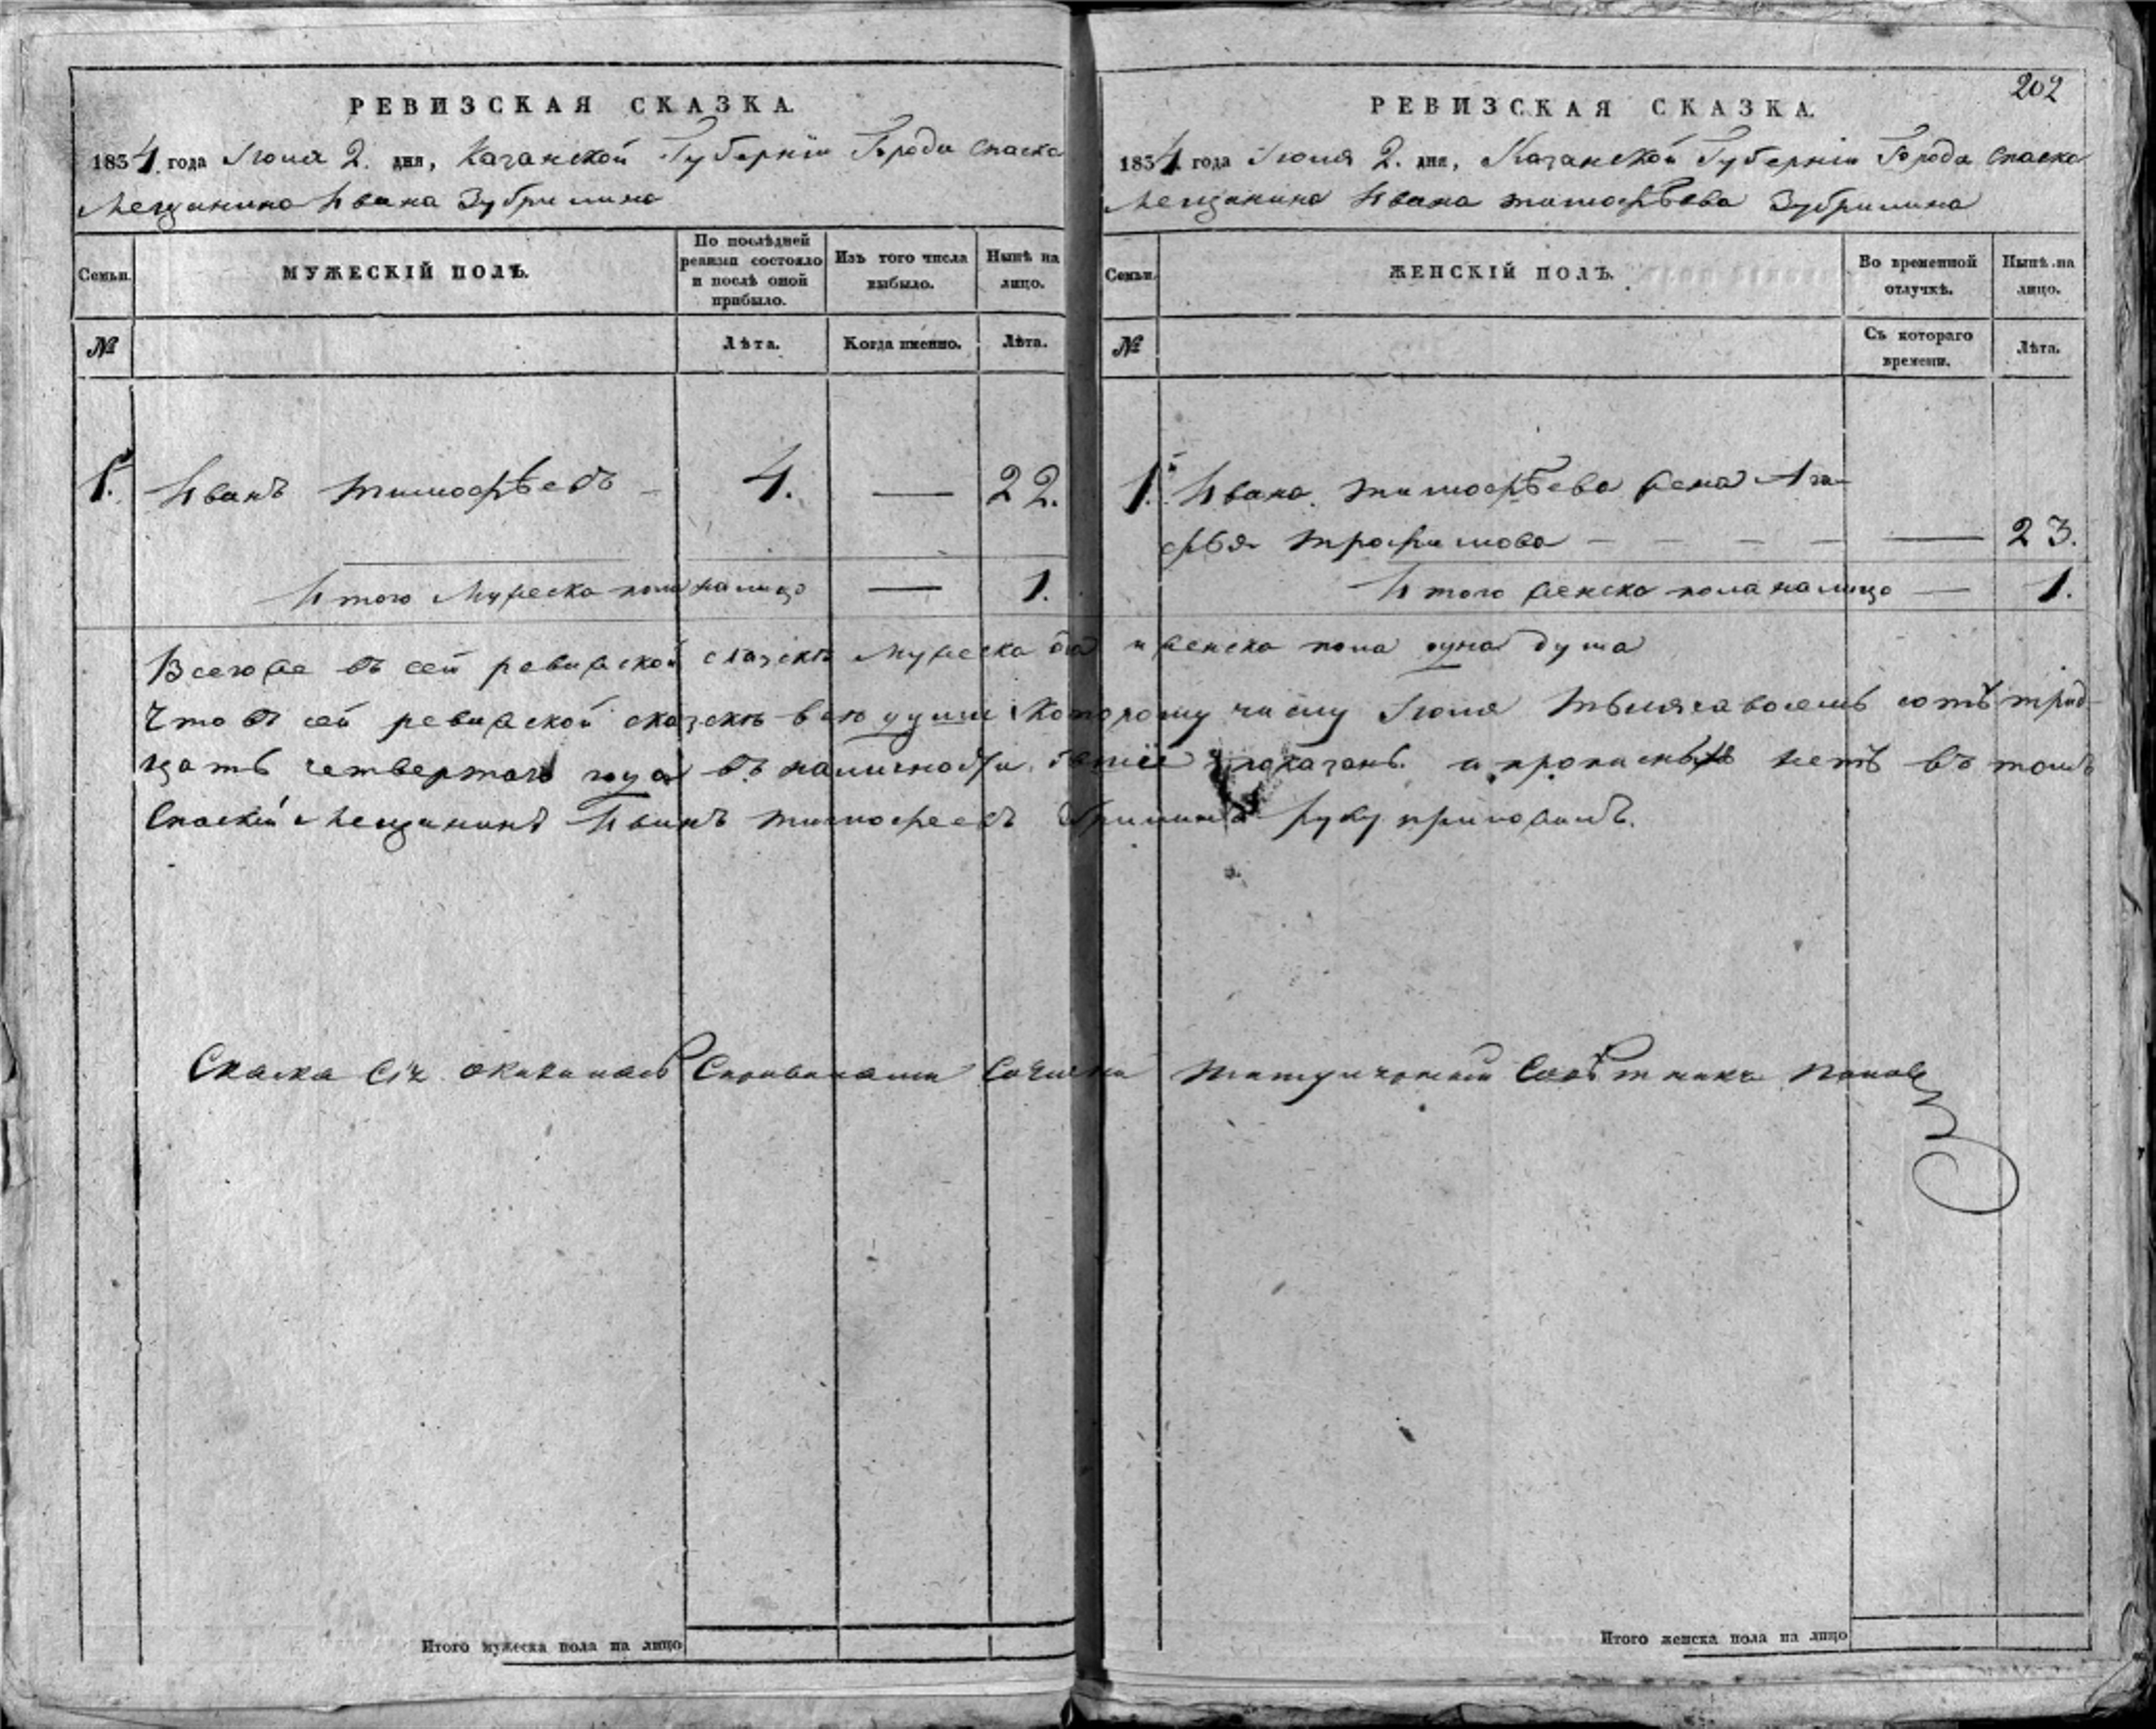 РЕВИЗСКАЯ СКАЗКА.
1834 года Июля 2. дня, Казанской Губерніи Города Спаска
Мещанина Ивана Зубрилина
Семьи.
МУЖЕСКІЙ ПОЛЪ.
По послѣдней ревизіи состояло и послѣ оной прибыло.
Изъ того числа выбыло.
Нынѣ на лицо.
№
Лѣта.
Когда именно.
Лѣта.
1. Иванъ Тимофѣевъ — 4. — 22.
Итого Мужеска пола налицо — 1.
202
РЕВИЗСКАЯ СКАЗКА.
1834 года Июля 2. дня, Казанской Губерніи Города Спаска
Мещанина Ивана Тимофѣева Зубрилина
Семьи.
ЖЕНСКІЙ ПОЛЪ.
Во временной отлучкѣ.
Нынѣ на лицо.
№
Съ котораго времени.
Лѣта.
1. Ивана Тимофѣева жена Ага-
фья Трофимова — — — — — 23.
Итого женска пола налицо — 1.
Всего же въ сей ревижской сказкѣ Мужеска и женска пола душа
Что въ сей ревижской сказкѣ числу Июля тысяча восемь сотъ трид-
цать четвертого года въ наличности показанъ а прописныхъ нетъ въ томъ
Спаский Мещанинъ Иванъ Тимофеевъ руку приложилъ.
Скаска Сія оказалась Титулярный Совѣтникъ Поповъ
Итого мужеска пола на лицо
Итого женска пола на лицо